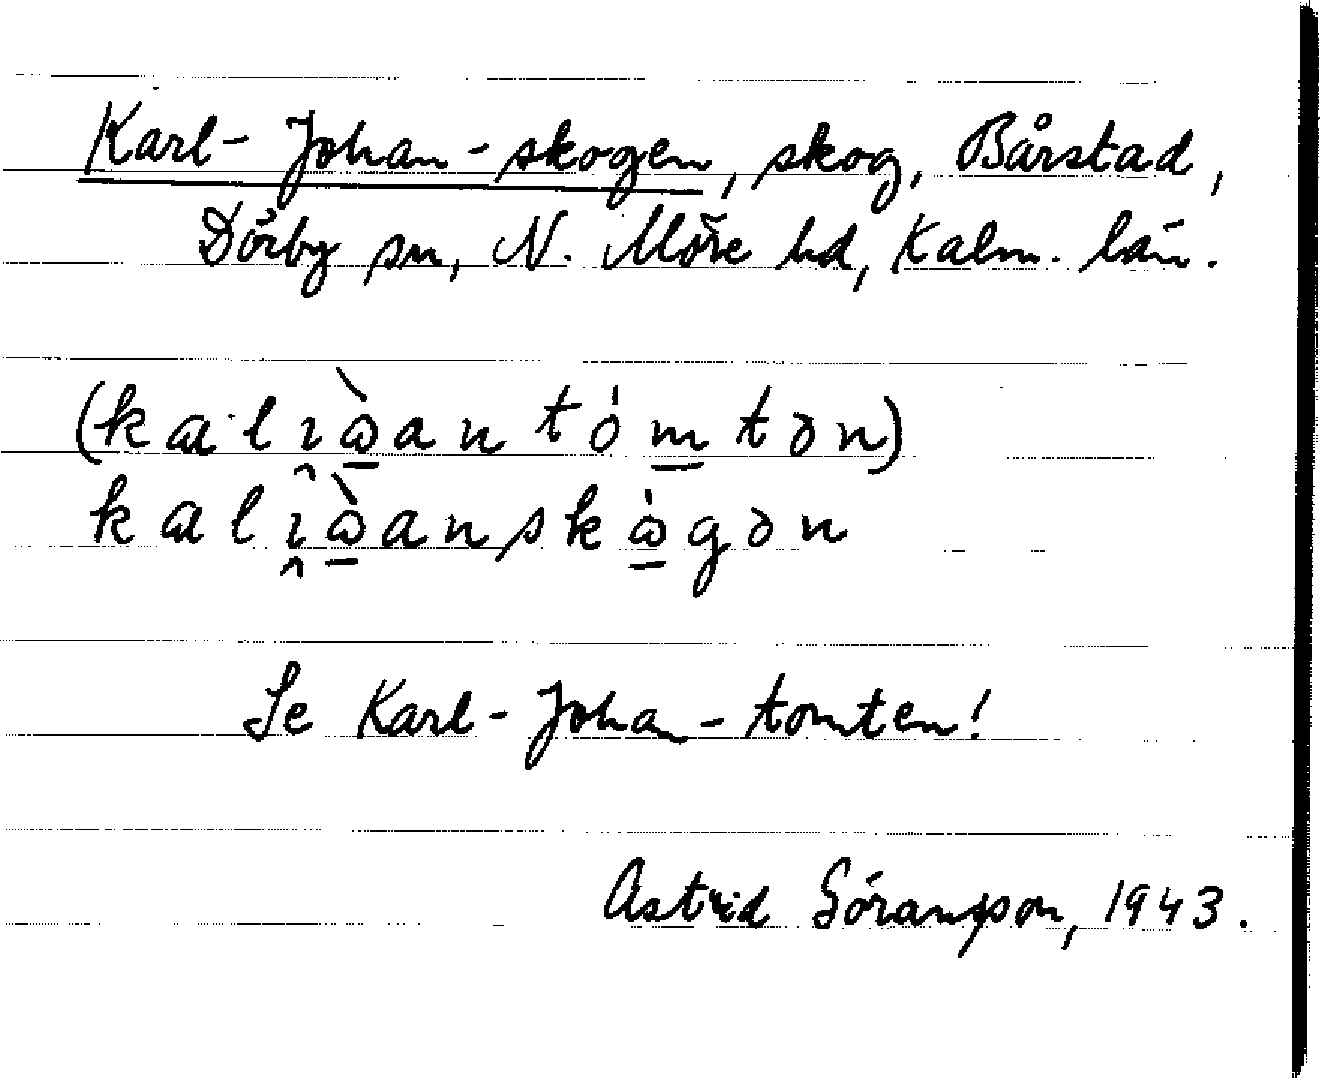 Karl-Johan-skogen, skog, Bårstad,
Dörby sn, N. Möre hd, Kalm. län.
Se Karl-Johan-tomten!
Astrid Göransson, 1943.